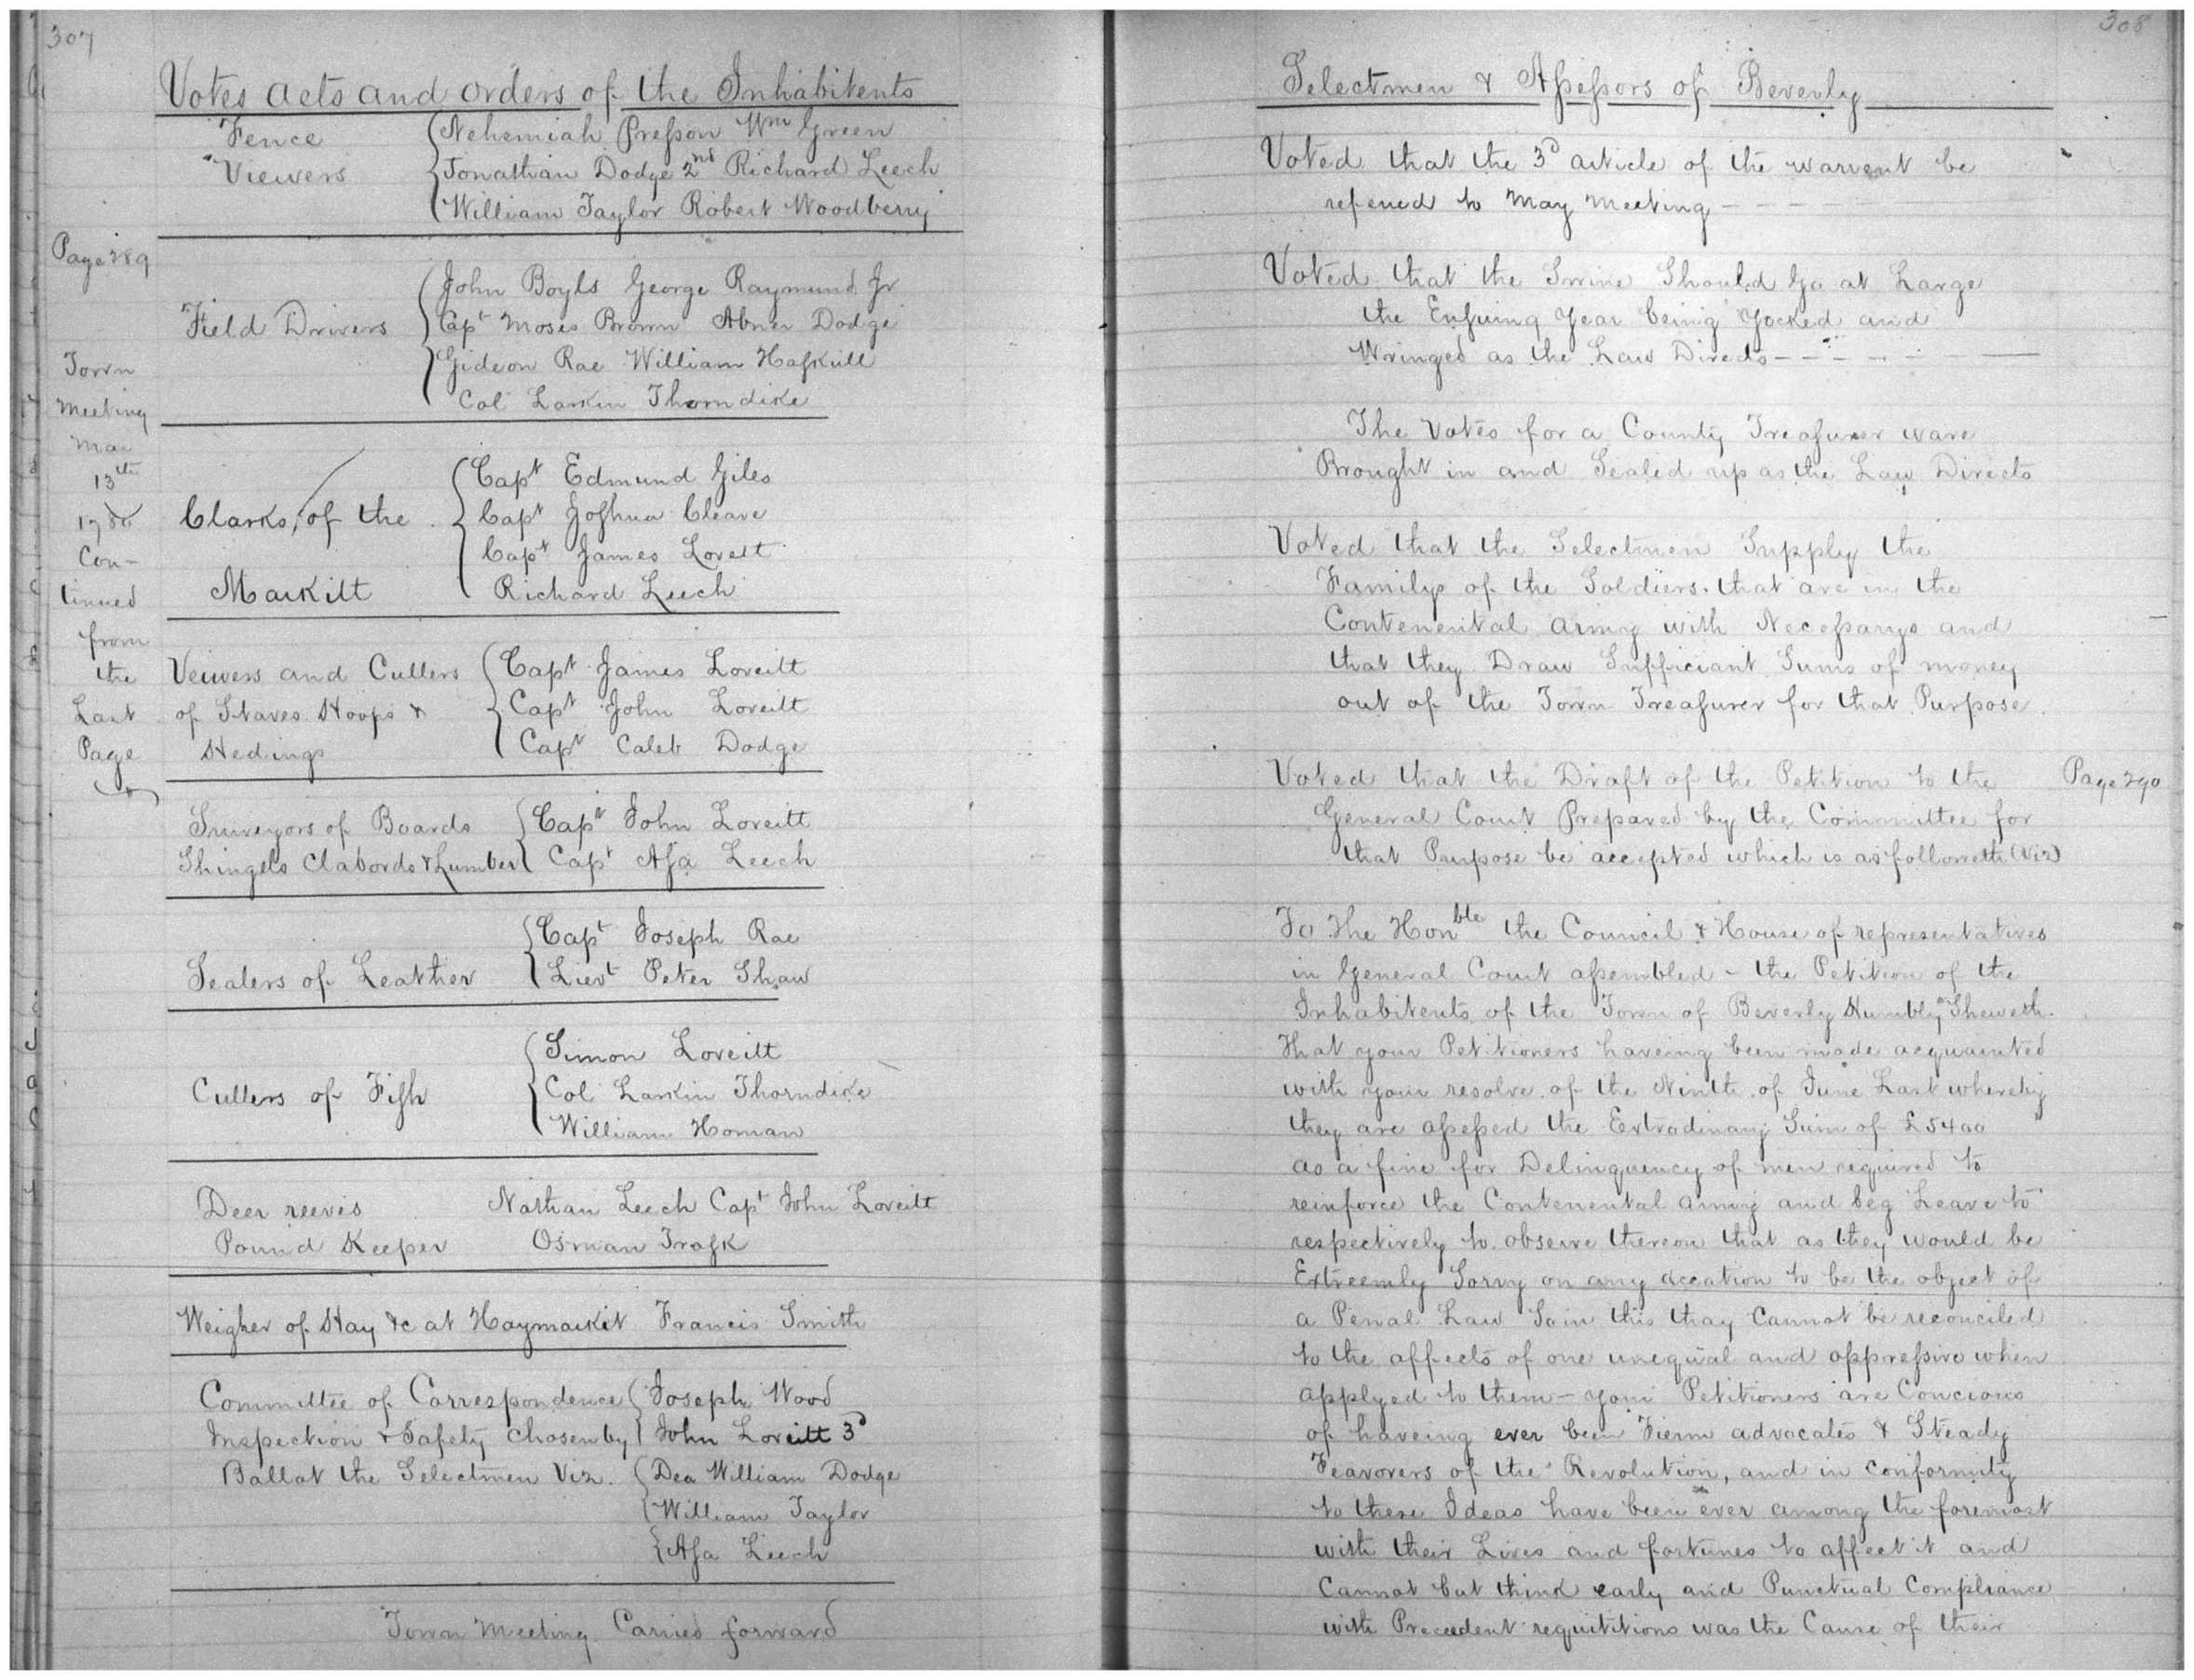 307
Votes acts and orders of the Inhabitents
Fence
Viewers
Nehemiah Preſson Wm Green
Jonathan Dodge 2nd Richard Leech
William Taylor Robert Woodberry
Page 289
Field Drivers
John Boyls George Raymund Jr
Capt Moses Brown Abner Dodge
Gideon Rae William Haſkill
Col Larkin Thorndike
Town
Meeting
Mar
13th
1780
Con-
tinued
from
the
Last
Page
Clarks, of the
Markitt
Capt Edmund Giles
Capt Joſhua Cleave
Capt James Lovett
Richard Leech
Veiwers and Cullers
of Staves Hoops &
Hedings
Capt James Loveitt
Capt John Loveitt
Capt Caleb Dodge
Surveyors of Boards
Shingels Clabords & Lumber
Capt John Loveitt
Capt Aſa Leech
Sealers of Leather
Capt Joseph Rae
Lievt Peter Shaw
Cullers of Fiſh
Simon Loveitt
Col Larkin Thorndike
William Homan
Deer reevis Nathan Leech Capt John Loveitt
Pound Keeper Osman Traſk
Weigher of Hay &c at Haymarkit Francis Smith
Committee of Correspondence
Inspection & Safety chosen by
Ballat the Selectmen Viz.
Joseph Wood
John Loveitt 3d
Dea William Dodge
William Taylor
Aſa Leech
Town Meeting Carried forward
308
Selectmen & Aſseſsors of Beverly
Voted that the 3d article of the warrent be
refened to May Meeting
Voted that the Swine Should Go at Large
the Enſuing Year being Yocked and
Wringed as the Law Directs
The Votes for a County Treaſurer ware
Brought in and Sealed up as the Law Directs
Voted that the Selectmen Supply the
Familys of the Soldiers that are in the
Contenental army with Neceſsarys and
that they Draw Sufficiant Sums of money
out of the Town Treaſurer for that Purpose.
Voted that the Draft of the Petition to the
Page 290
General Court Prepared by the Committee for
that Paurpose be accepted which is as followeth (Viz)
To the Honble the Council & House of representatives
in General Court aſsembled - the Petition of the
Inhabitents of the Town of Beverly Humbly Sheweth.
That your Petitioners haveing been made acquainted
with your resolve of the Ninth of June Last whereby
they are aſseſsed the Extradinary Sum of £5400
as a fine for Delinquency of men required to
reinforce the Contenental army and beg Leave to
respectively to observe thereon that as they would be
Extreemly Sorry on any occation to be the object of
a Penal Law So in this thay Cannot be reconciled
to the affects of one unequal and oppreſsive when
applyed to them - your Petitioners are Concious
of haveing ever been Fierm advocates & Steady
Feavorers of the Revolution, and in conformity
to these Ideas have been ever among the foremost
with their Lives and fortunes to affect it and
Cannot but think early and Punctual Compliance
with Precedent requititions was the Cause of their